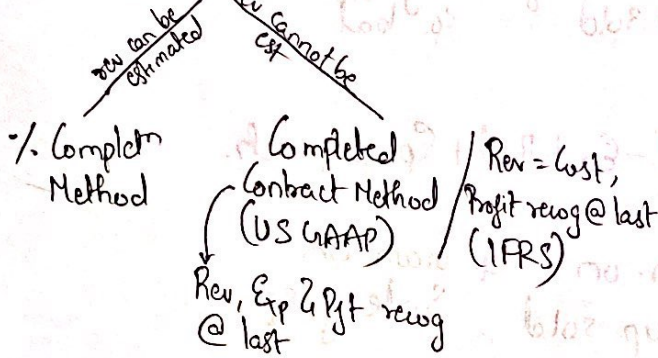 rev can be
estimated
rev cannot be
est
% Completn
Method
Completed
Contract Method
(US GAAP)
Rev = Cost,
Profit recog @ last
(IFRS)
Rev, Exp & Pft recog
@ last